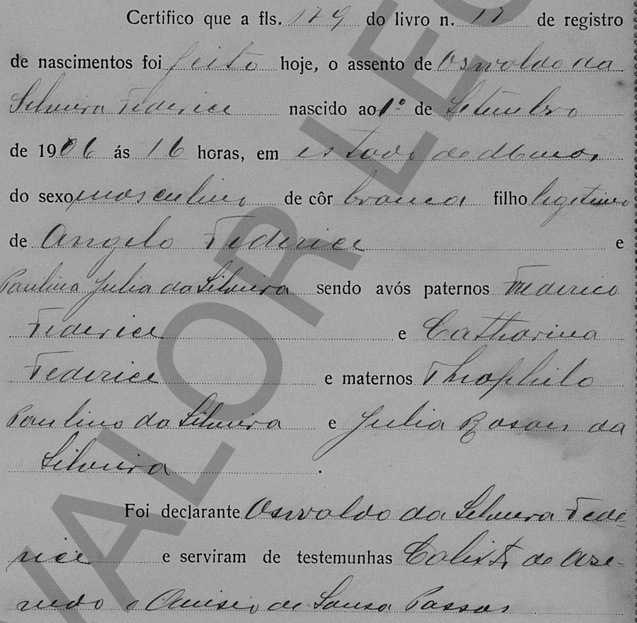 Certifico que a fls. 179 do livro n. 17 de registro
de nascimentos foi feito hoje, o assento de Oswaldo da
Silveira Federice nascido ao 1º de Setembro
de 1906 ás 16 horas, em estado de Minas,
do sexo masculino de côr branca filho legitimo
de Angelo Federice e
Paulina Julia da Silveira sendo avós paternos Frederico
Federice e Catharina
Federice e maternos Theophilo
Paulino da Silveira e Julia da
Silveira.
Foi declarante Oswaldo da Silveira Fede
rice e serviram de testemunhas Calixto de Aze-
vedo e de Sousa Passos
VALOR LEG